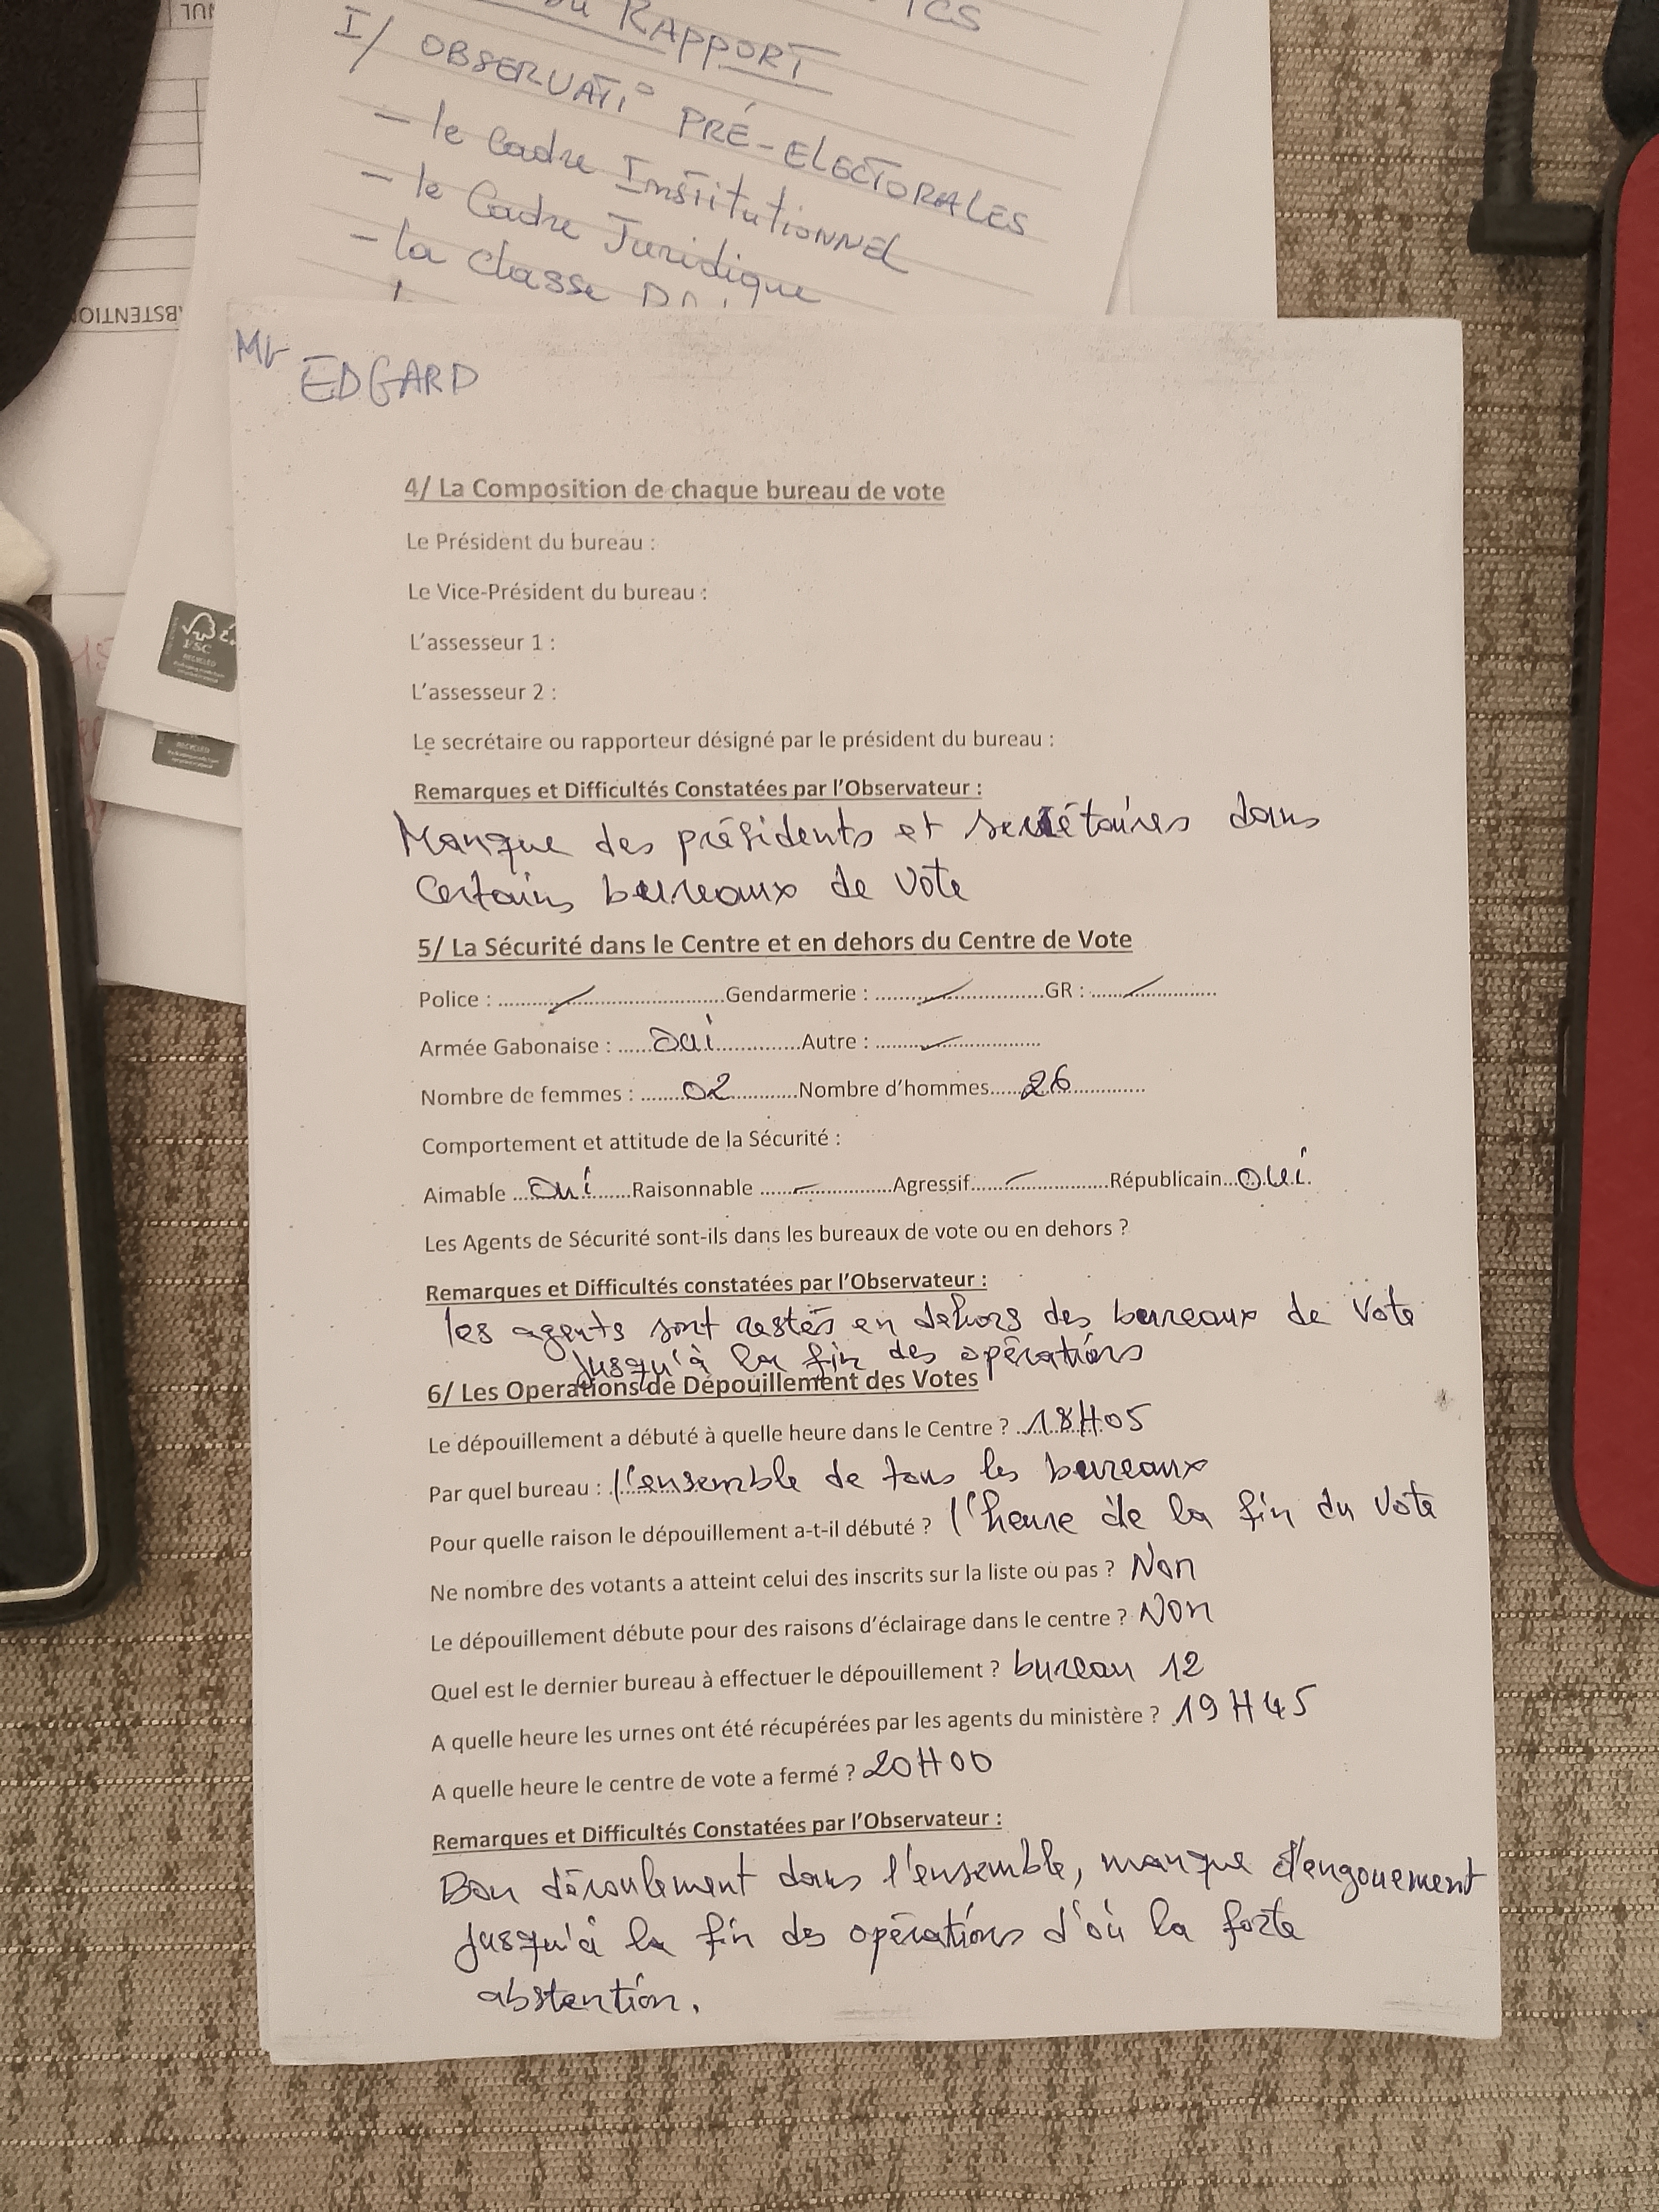 RAPPORT
I/ OBSERVATI° PRÉ-ELECTORALES
- le Cadre Institutionnel
- le Cadre Juridique
- la classe
Mr EDGARD
4/ La Composition de chaque bureau de vote
Le Président du bureau :
Le Vice-Président du bureau :
L'assesseur 1 :
L'assesseur 2 :
Le secrétaire ou rapporteur désigné par le président du bureau :
Remarques et Difficultés Constatées par l'Observateur :
Manque des présidents et secrétaires dans
Certains bureaux de vote
5/ La Sécurité dans le Centre et en dehors du Centre de Vote
Police : ........................Gendarmerie : ........................GR : ........................
Armée Gabonaise : ..... oui ............Autre : ........................
Nombre de femmes : ....... 02 ............Nombre d'hommes..... 26 ............
Comportement et attitude de la Sécurité :
Aimable ... oui .......Raisonnable ........................Agressif........................Républicain... oui.
Les Agents de Sécurité sont-ils dans les bureaux de vote ou en dehors ?
Remarques et Difficultés constatées par l'Observateur :
les agents sont restés en dehors des bureaux de vote
jusqu'à la fin des opérations
6/ Les Operations de Dépouillement des Votes
Le dépouillement a débuté à quelle heure dans le Centre ? 18H05
Par quel bureau : l'ensemble de tous les bureaux
Pour quelle raison le dépouillement a-t-il débuté ? l'heure de la fin du vote
Ne nombre des votants a atteint celui des inscrits sur la liste ou pas ? Non
Le dépouillement débute pour des raisons d'éclairage dans le centre ? Non
Quel est le dernier bureau à effectuer le dépouillement ? bureau 12
A quelle heure les urnes ont été récupérées par les agents du ministère ? 19H45
A quelle heure le centre de vote a fermé ? 20H00
Remarques et Difficultés Constatées par l'Observateur :
Bon déroulement dans l'ensemble, manque d'engouement
jusqu'à la fin des opérations d'où la forte
abstention.
FSC
RECYCLED
RECYCLED